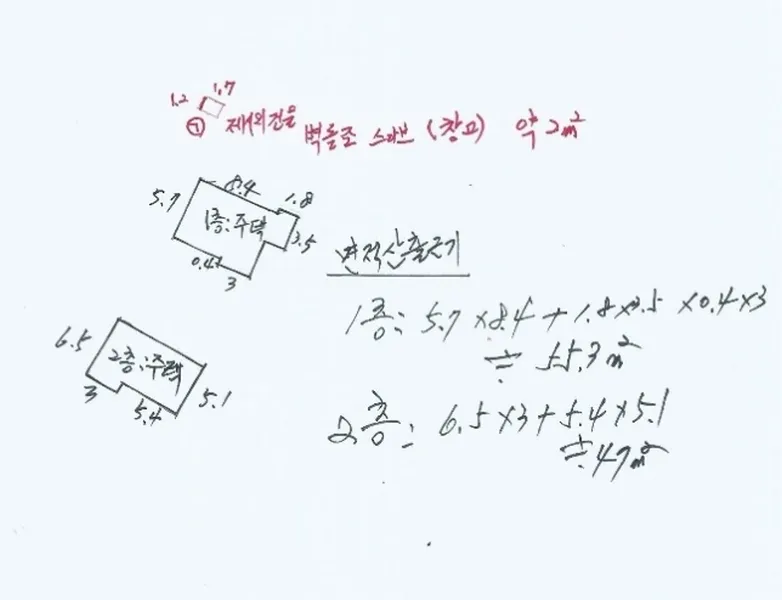 1.7
1.2
㉠ 제시외건물 벽돌조 스라브 (창고) 약 2㎡
8.4
5.7
1.8
1층:주택
3.5
0.4
3
면적산출근거
1층: 5.7 × 8.4 + 1.8 × 3.5 × 0.4 × 3
≒ 55.3㎡
6.5
2층:주택
3
5.4
5.1
2층: 6.5 × 3 + 5.4 × 5.1
≒ 47㎡